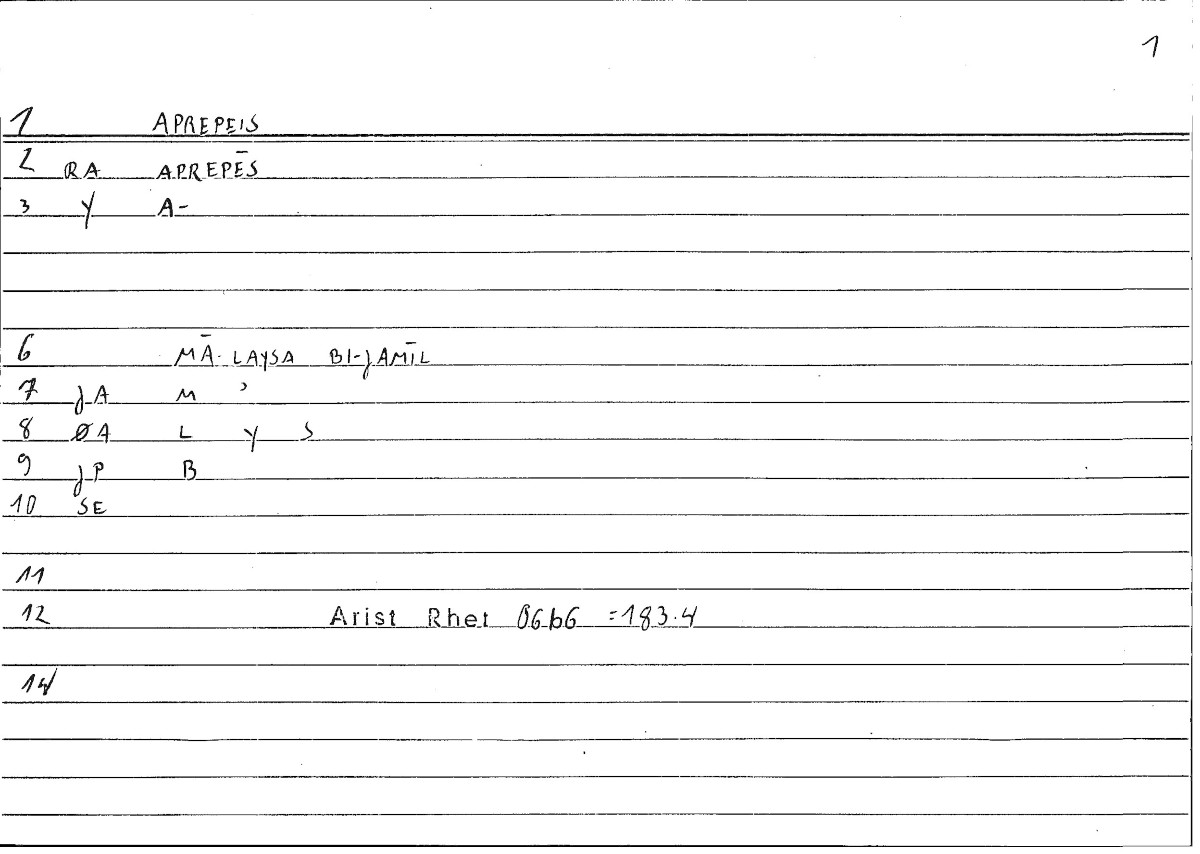 1
1 APREPEIS
2 RA APREPĒS
3 Y A-
6 MĀ-LAYSA BI-JAMĪL
7 JA M ʾ
8 ØA L Y S
9 JP B
10 SE
11
12 Arist Rhet 06b6 =183.4
14